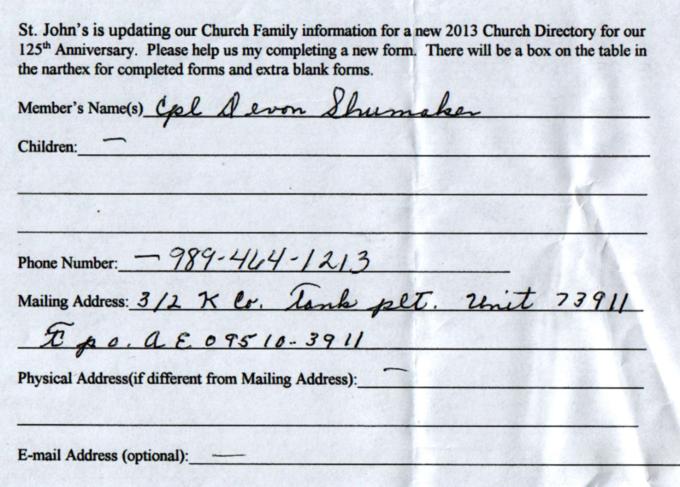 St. John's is updating our Church Family information for a new 2013 Church Directory for our
125th Anniversary. Please help us my completing a new form. There will be a box on the table in
the narthex for completed forms and extra blank forms.
Member's Name(s) Cpl Devon Shumaker
Children: —
Phone Number: — 989-464-1213
Mailing Address: 3/2 K Co. Tank plt. Unit 73911
F p o. A E 09510-3911
Physical Address(if different from Mailing Address): —
E-mail Address (optional): —